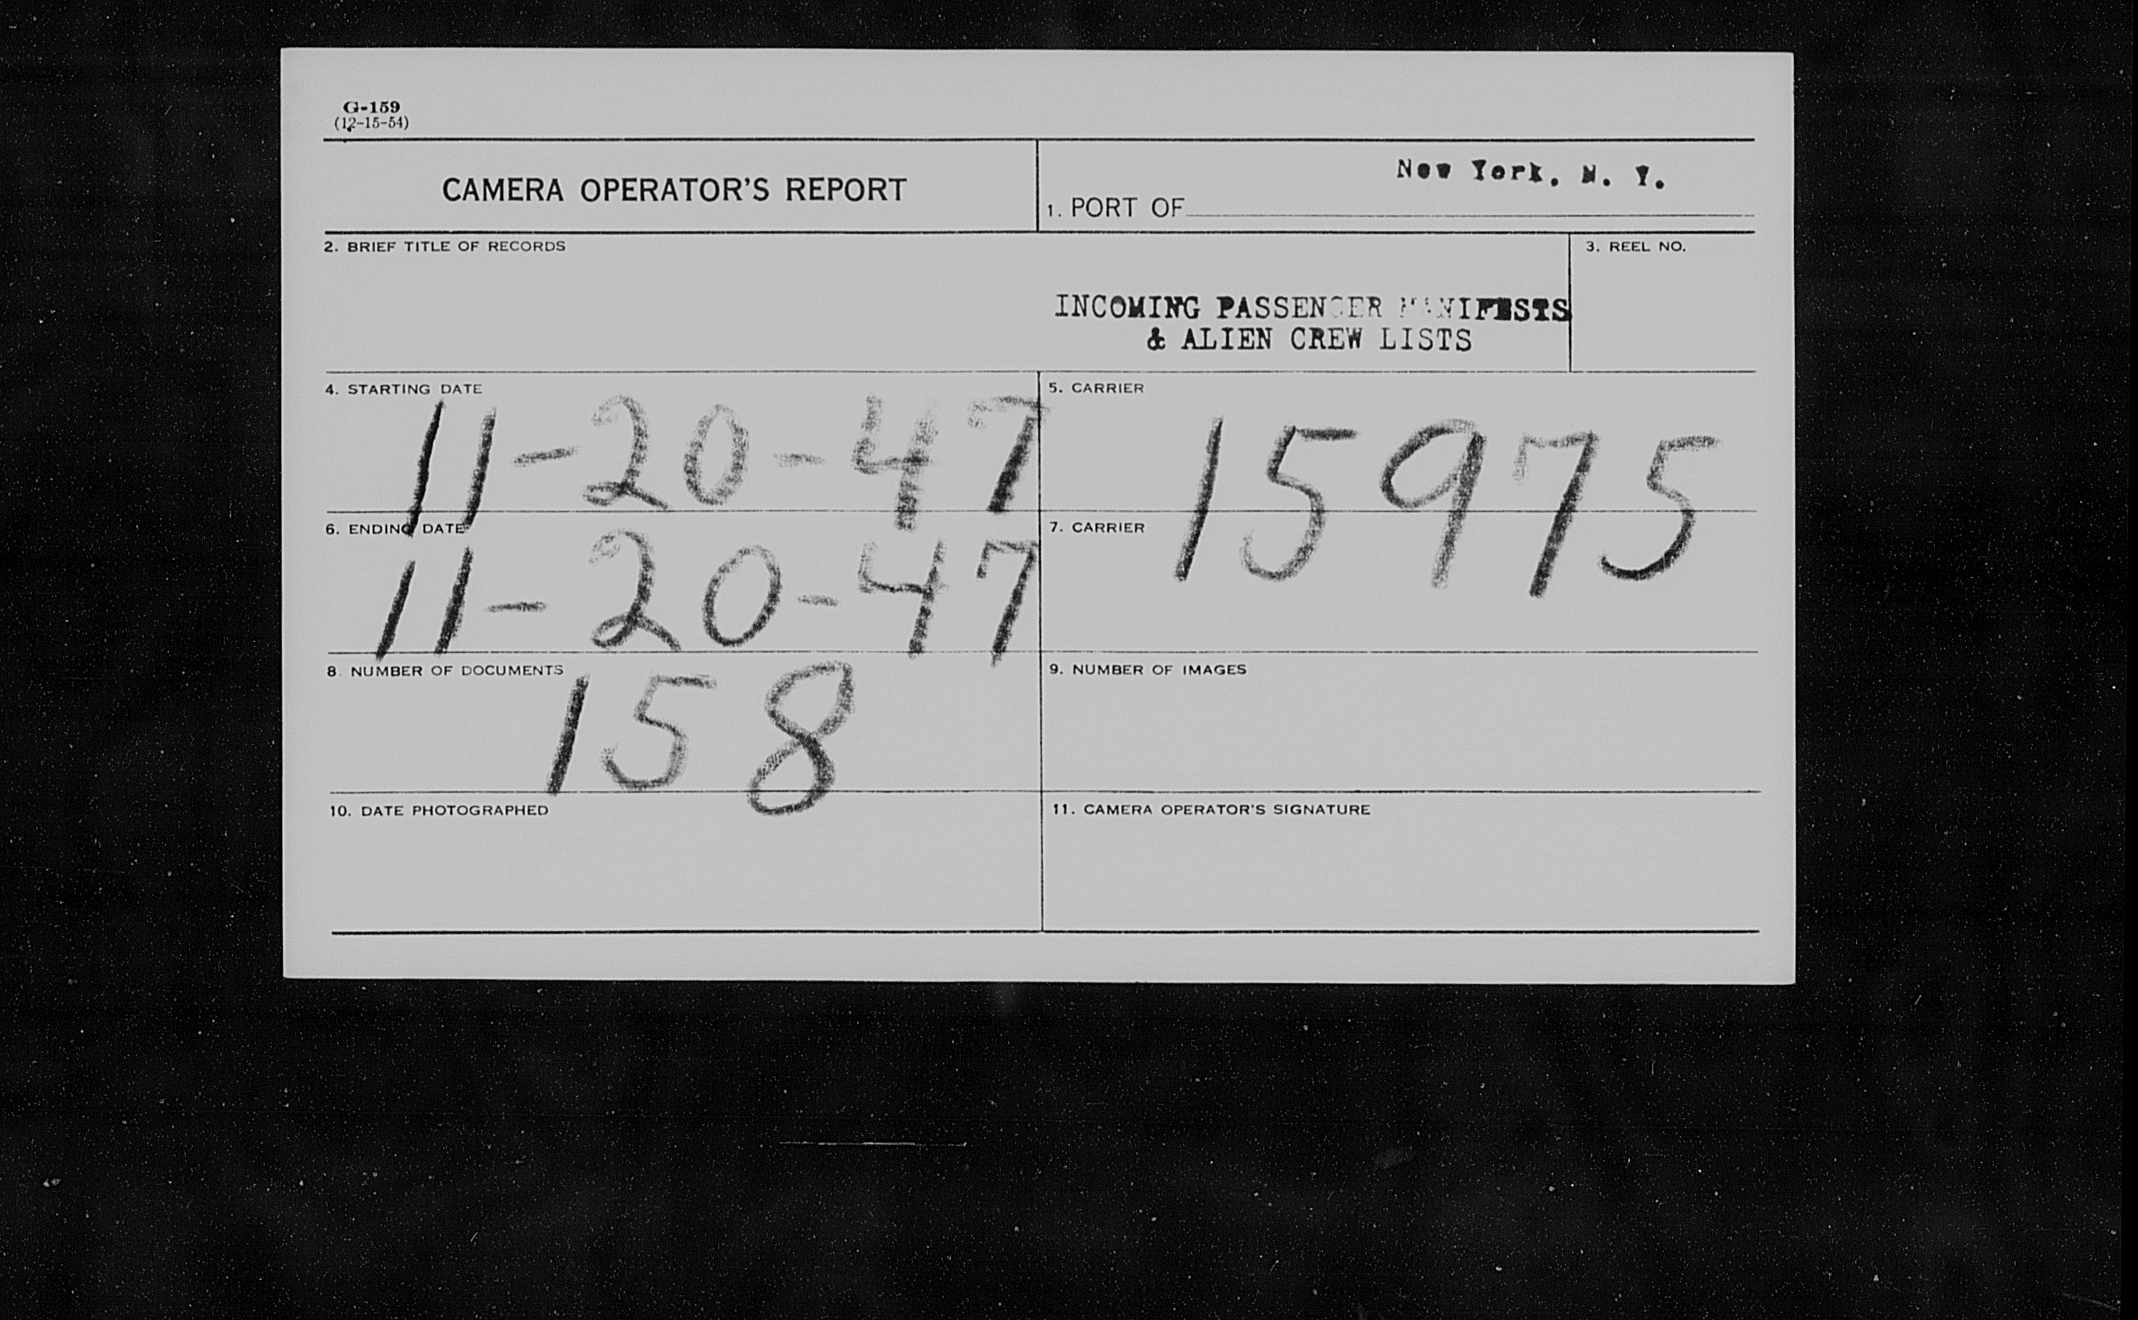 G-159
(12-15-54)
CAMERA OPERATOR'S REPORT
New York, N. Y.
1. PORT OF
2. BRIEF TITLE OF RECORDS
3. REEL NO.
INCOMING PASSENGER MANIFESTS
& ALIEN CREW LISTS
4. STARTING DATE
11-20-47
5. CARRIER
15975
6. ENDING DATE
11-20-47
7. CARRIER
8. NUMBER OF DOCUMENTS
158
9. NUMBER OF IMAGES
10. DATE PHOTOGRAPHED
11. CAMERA OPERATOR'S SIGNATURE